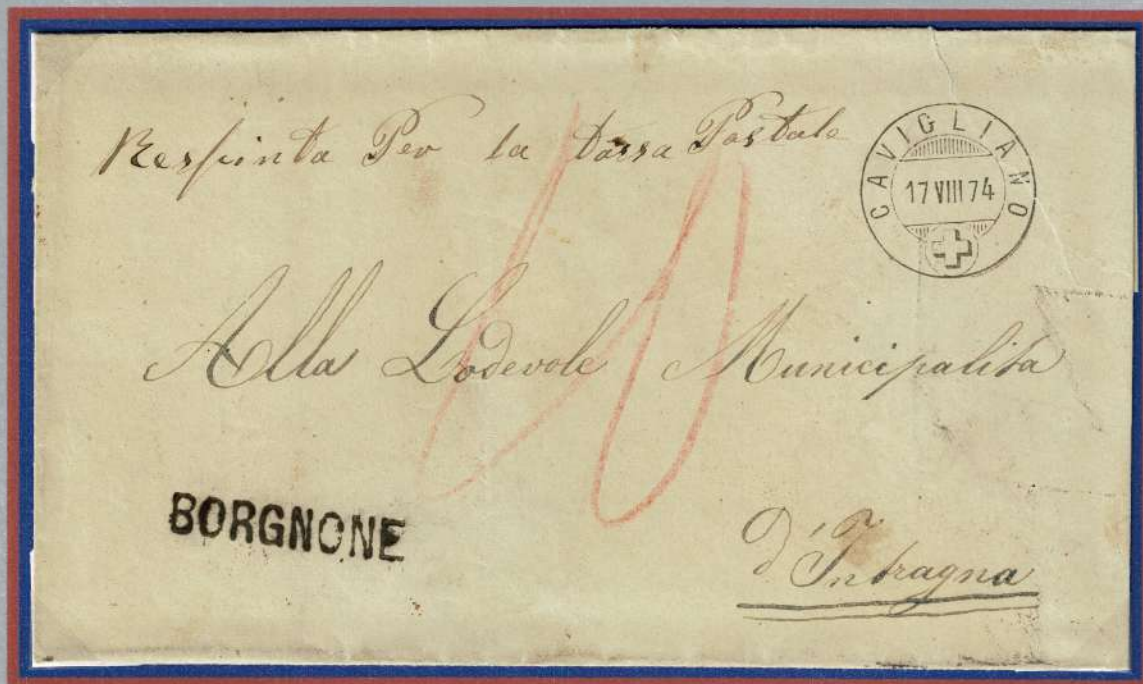 Respinta Per la tassa Postale
CAVIGLIANO
17 VIII 74
10
Alla Lodevole Municipalità
BORGNONE
d'Intragna